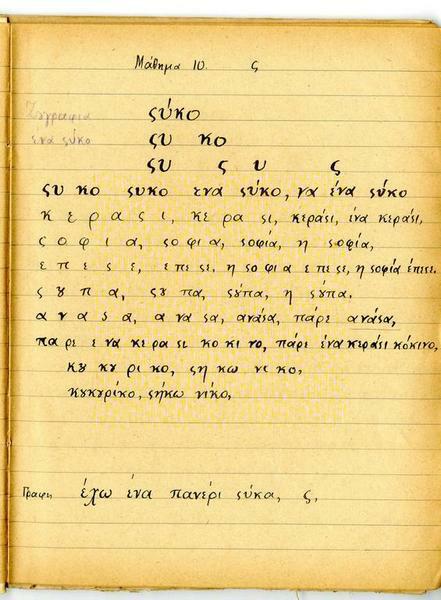 Μάθημα 10. ς
Ζωγραφια ςύκο
ένα ςύκο ςυ κο
ςυ ς υ ς
ςυ κο ςυκο ενα ςύκο, να ένα ςύκο
κ ε ρ α ς ι, κε ρα ςι, κεράςι, ένα κεράςι,
ς ο φ ι α, ςο φι α, ςοφία, η ςοφία,
ε π ε ς ε, ε πε ςε, η ςο φι α ε πε ςε, η ςοφία έπεςε.
ς ȣ π α, ςȣ πα, ςȣ́πα, η ςȣ́πα.
α ν α ς α, α να ςα, ανάςα, πάρε ανάςα,
πα ρε ε να κε ρα ςι κο κι νο, πάρε ένα κεράςι κόκινο,
κȣ κȣ ρι κο, ςη κω νι κο,
κȣκȣρίκο, ςήκω νίκο,
Γραφη έχω ένα πανέρι ςύκα, ς,